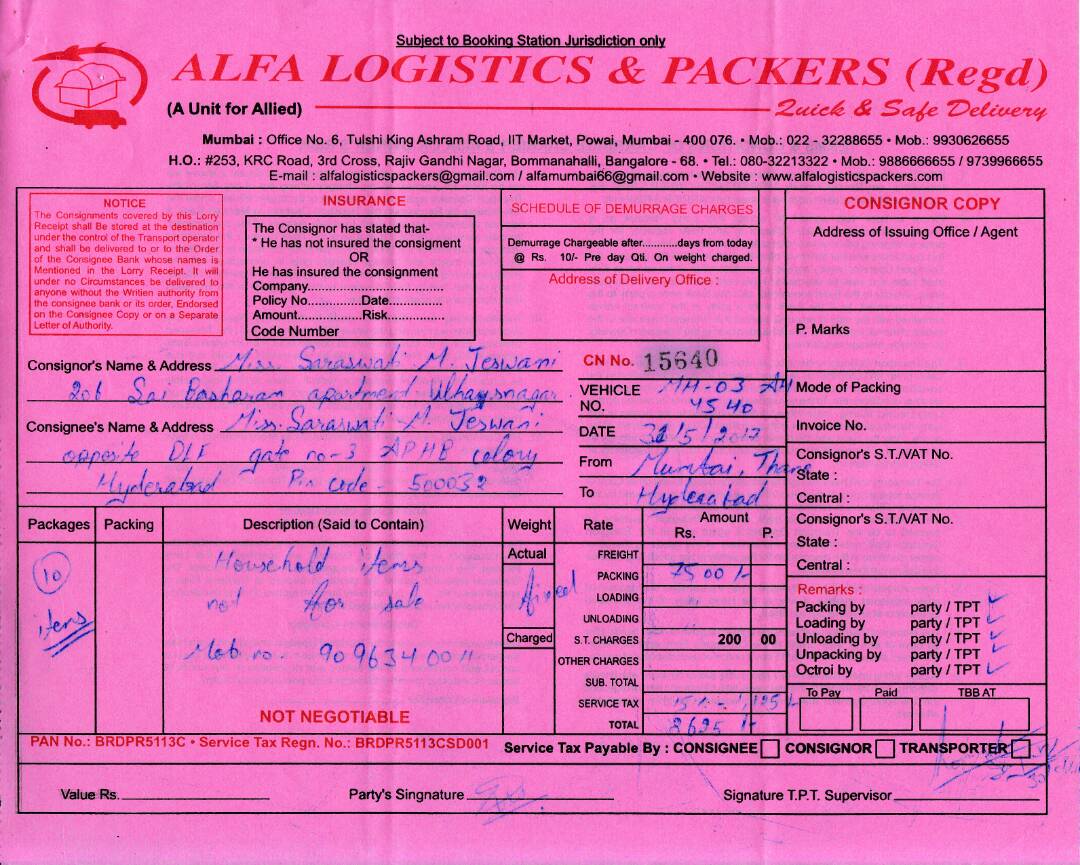 Subject to Booking Station Jurisdiction only
ALFA LOGISTICS & PACKERS (Regd)
(A Unit for Allied)
Quick & Safe Delivery
Mumbai : Office No. 6, Tulshi King Ashram Road, IIT Market, Powai, Mumbai - 400 076. • Mob.: 022 - 32288655 • Mob.: 9930626655
H.O.: #253, KRC Road, 3rd Cross, Rajiv Gandhi Nagar, Bommanahalli, Bangalore - 68. • Tel.: 080-32213322 • Mob.: 9886666655 / 9739966655
E-mail : alfalogisticspackers@gmail.com / alfamumbai66@gmail.com • Website : www.alfalogisticspackers.com
NOTICE
The Consignments covered by this Lorry
Receipt shall Be stored at the destination
under the control of the Transport operator
and shall be delivered to or to the Order
of the Consignee Bank whose names is
Mentioned in the Lorry Receipt. It will
under no Circumstances be delivered to
anyone without the Writien authority from
the consignee bank or its order, Endorsed
on the Consignee Copy or on a Separate
Letter of Authority.
INSURANCE
The Consignor has stated that-
* He has not insured the consigment
OR
He has insured the consignment
Company..................................
Policy No..............Date..............
Amount.................Risk...............
Code Number
SCHEDULE OF DEMURRAGE CHARGES
Demurrage Chargeable after............days from today
@ Rs. 10/- Pre day Qti. On weight charged.
Address of Delivery Office :
CONSIGNOR COPY
Address of Issuing Office / Agent
P. Marks
Mode of Packing
Invoice No.
Consignor's S.T./VAT No.
State :
Central :
Consignor's S.T./VAT No.
State :
Central :
Consignor's Name & Address Miss. Saraswati M. Jeswani
206 Sai Basharam apartment Ulhasnagar
Consignee's Name & Address Miss. Saraswati M. Jeswani
opposite DLF gate no-3 APHB colony
Hyderabad Pin code - 500032
CN No. 15640
VEHICLE NO. MH-03 AH
4540
DATE 31/5/2017
From Mumbai, Thane
To Hyderabad
Packages Packing Description (Said to Contain) Weight Rate Amount
Rs. P.
10
items
Household items
not for sale
Mob no - 9096340011
Actual
Fixed
Charged
FREIGHT
PACKING 7500/-
LOADING
UNLOADING
S.T. CHARGES 200 00
OTHER CHARGES
SUB. TOTAL
SERVICE TAX 1,125/-
TOTAL 8625/-
NOT NEGOTIABLE
Remarks :
Packing by party / TPT
Loading by party / TPT
Unloading by party / TPT
Unpacking by party / TPT
Octroi by party / TPT
To Pay Paid TBB AT
PAN No.: BRDPR5113C • Service Tax Regn. No.: BRDPR5113CSD001
Service Tax Payable By : CONSIGNEE CONSIGNOR TRANSPORTER
Value Rs.
Party's Singnature
Signature T.P.T. Supervisor